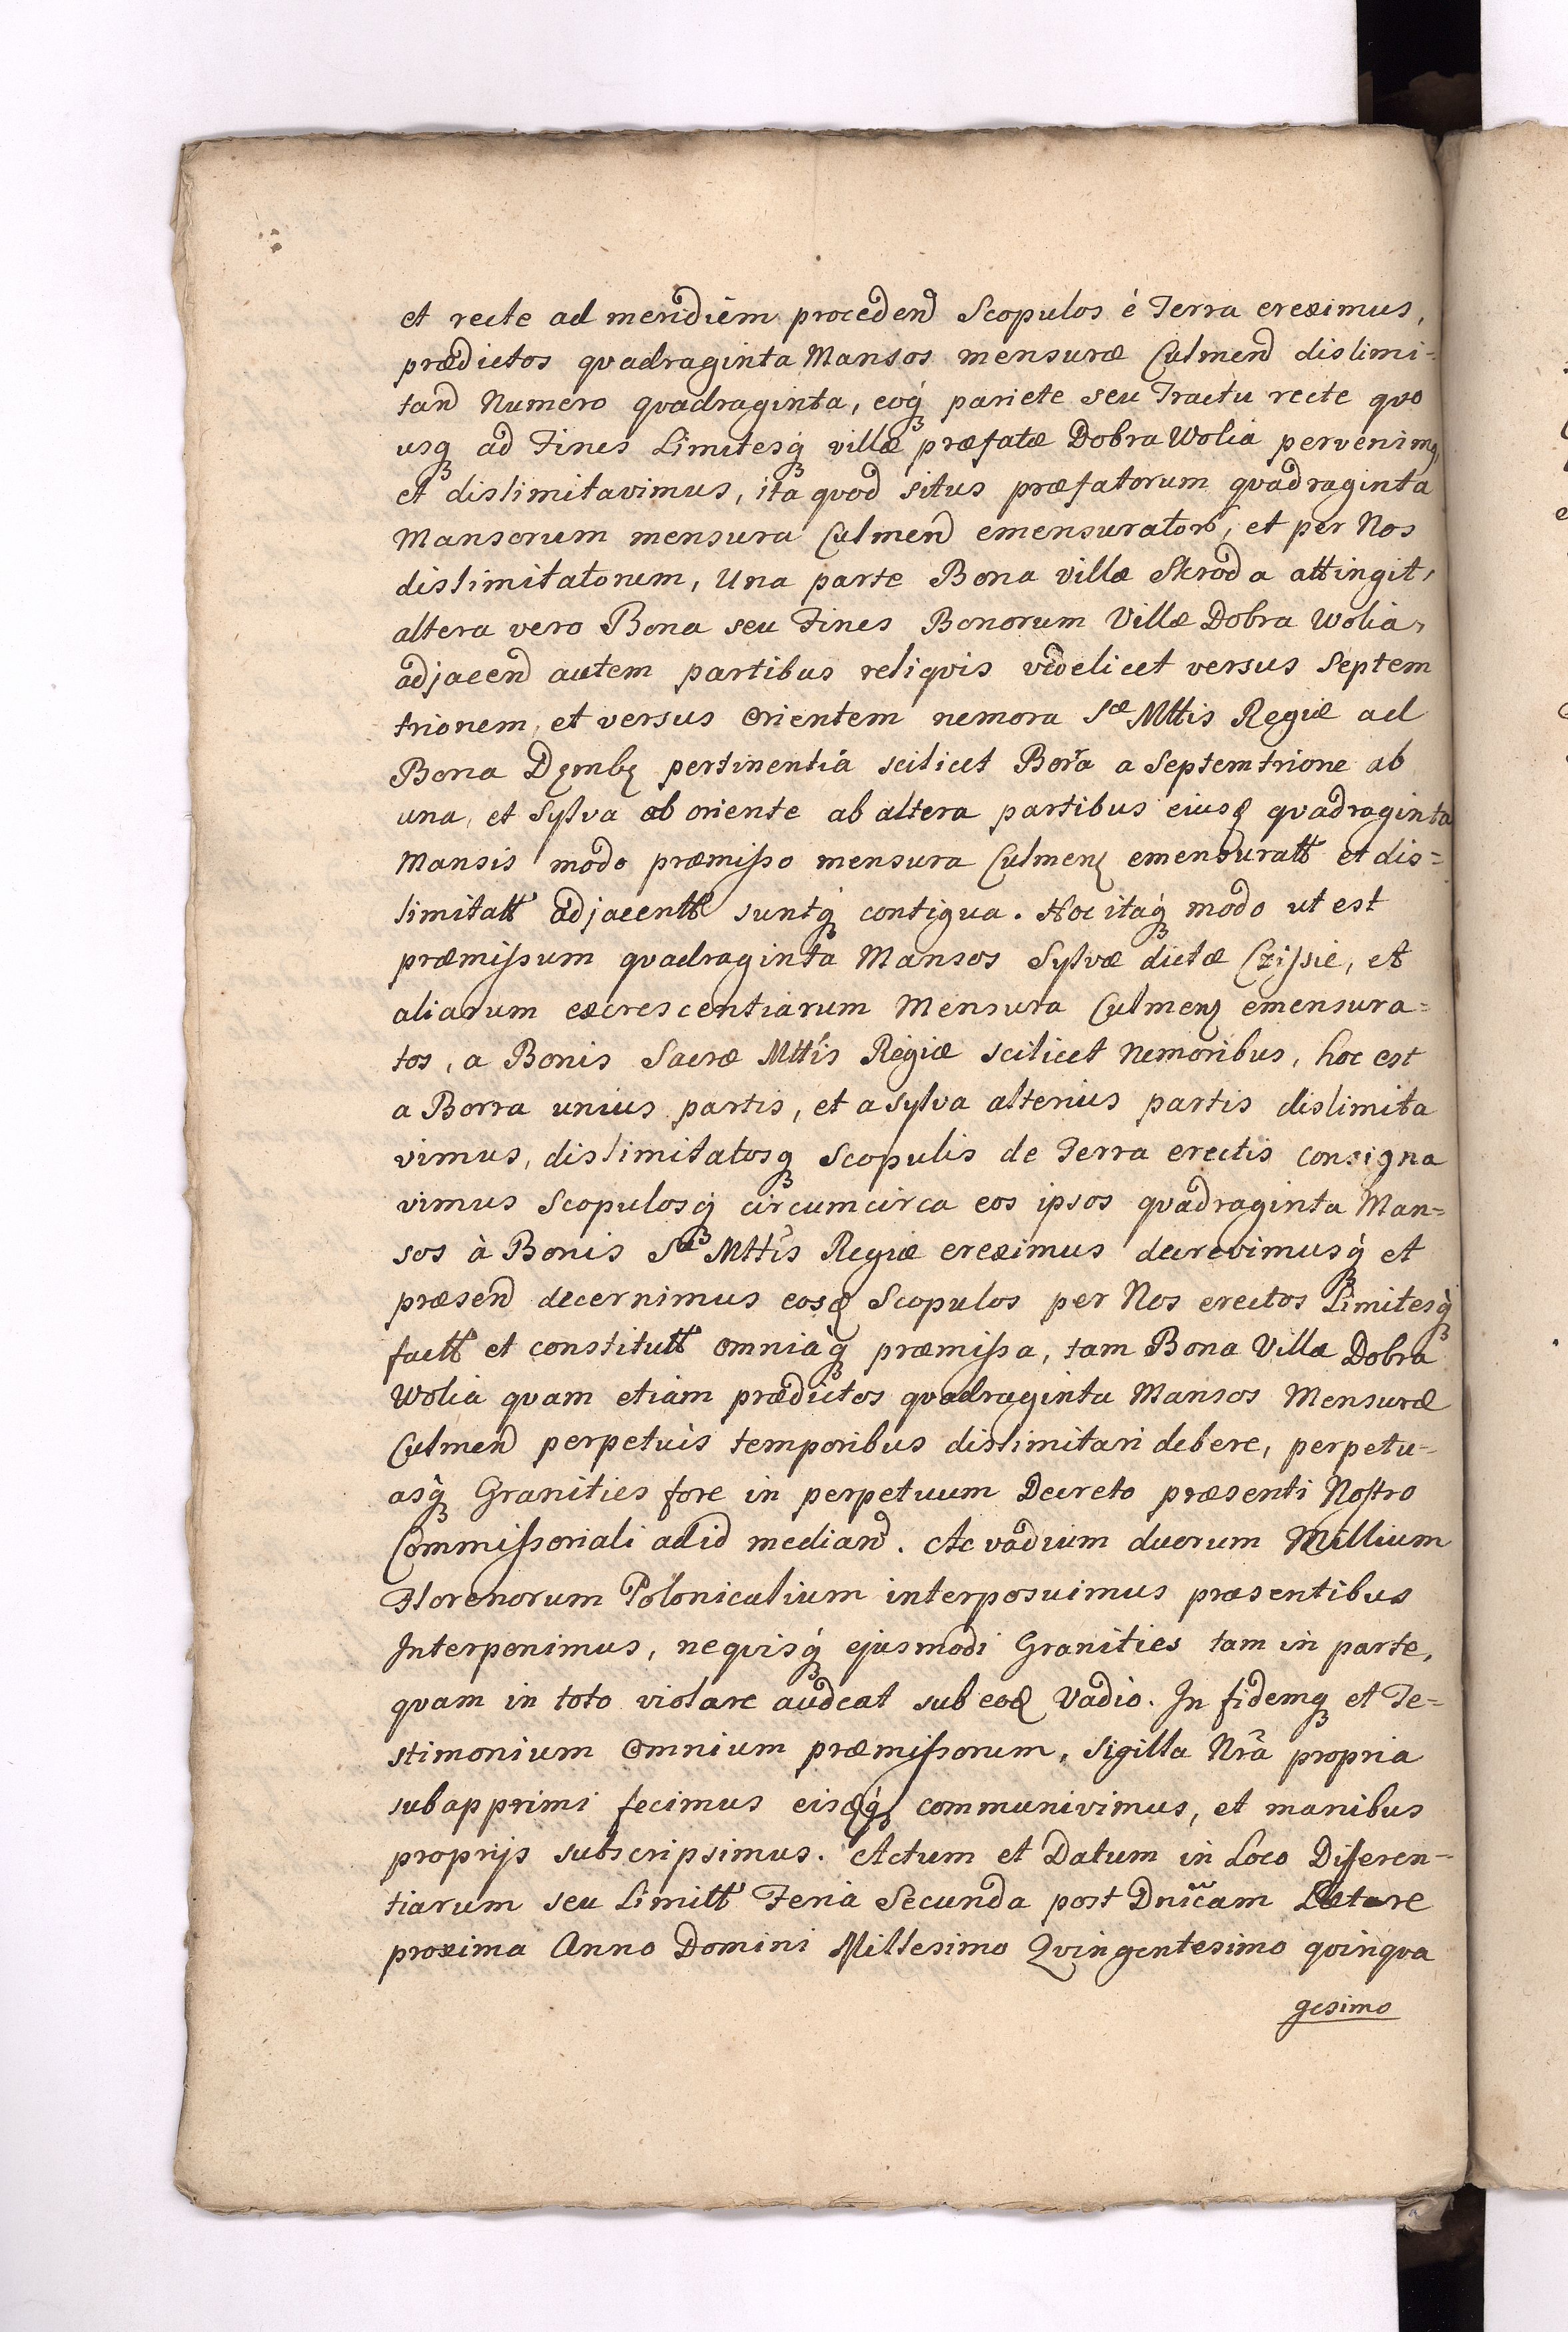 et recte ad meridiem procedend Scopulos è Terra ereximus,
prædictos quadraginta Mansos mensuræ Culmend dislimi=
tand Numero quadraginta, eoq́ꝫ pariete seu Tractu recte quo
usqꝫ ad Fines Limitesq́ꝫ villæ præfatæ Dobra Wolia pervenimꝯ,
et dislimitavimus, ita quod situs præfatorum quadraginta
Mansorum mensura Culmend emensurator, et per Nos
dislimitatorum, Una parte Bona villæ Skroda attingit,
altera vero Bona seu Fines Bonorum Villæ Dobra Wolia,
adjacend autem partibus reliqvis videlicet versus Septem
trionem, et versus Orientem nemora Sæ Mttis Regiæ ad
Bona Dęmbę pertinentia scilicet Borra a Septemtrione ab
una, et Sylva ab oriente ab altera partibus eiusꝺ quadraginta
Mansis modo præmisso mensura Culmenꝺ emensuratt et dis=
limitatt adjacentt suntq́ꝫ contigua. Hoc itaq́ꝫ modo ut est
præmissum quadraginta Mansos Sylvæ dictæ Czissie, et
aliarum excrescentiarum Mensura Culmenꝺ emensura=
tos, a Bonis Sacræ Mttis Regiæ scilicet Nemoribus, hoc est
a Borra unius partis, et a sylva alterius partis dislimita
vimus, dislimitatosqꝫ Scopulis de Terra erectis consigna
vimus Scopulosq́ꝫ circumcirca eos ipsos quadraginta Man=
sos à Bonis Sæ Mttis Regiæ ereximus decrevimusq́ꝫ et
præsend decernimus eosꝺ Scopulos per Nos erectos Limitesq́ꝫ
factt et constitutt omniaq́ꝫ præmissa, tam Bona Villæ Dobra
Wolia quam etiam prædictos quadraginta Mansos Mensuræ
Culmend perpetuis temporibus dislimitari debere, perpetu=
asq́ꝫ Granities fore in perpetuum Decreto præsenti Nostro
Commissoriali ad id mediand. Ac vadium duorum Millium
Florenorum Polonicalium interposuimus præsentibus
Interponimus, nequisq́ꝫ ejusmodi Granities tam in parte,
quam in toto violare audeat sub eoꝺ Vadio. In fidemqꝫ et Te=
stimonium Omnium præmissorum, Sigilla Nrã propria
subapprimi fecimus eisꝺq́ꝫ communivimus, et manibus
proprijs subscripsimus. Actum et Datum in Loco Diferen=
tiarum seu Limitt Feria Secunda post Dnicam Lætare
proxima Anno Domini Millesimo Qvingentesimo qvinqva
gesimo